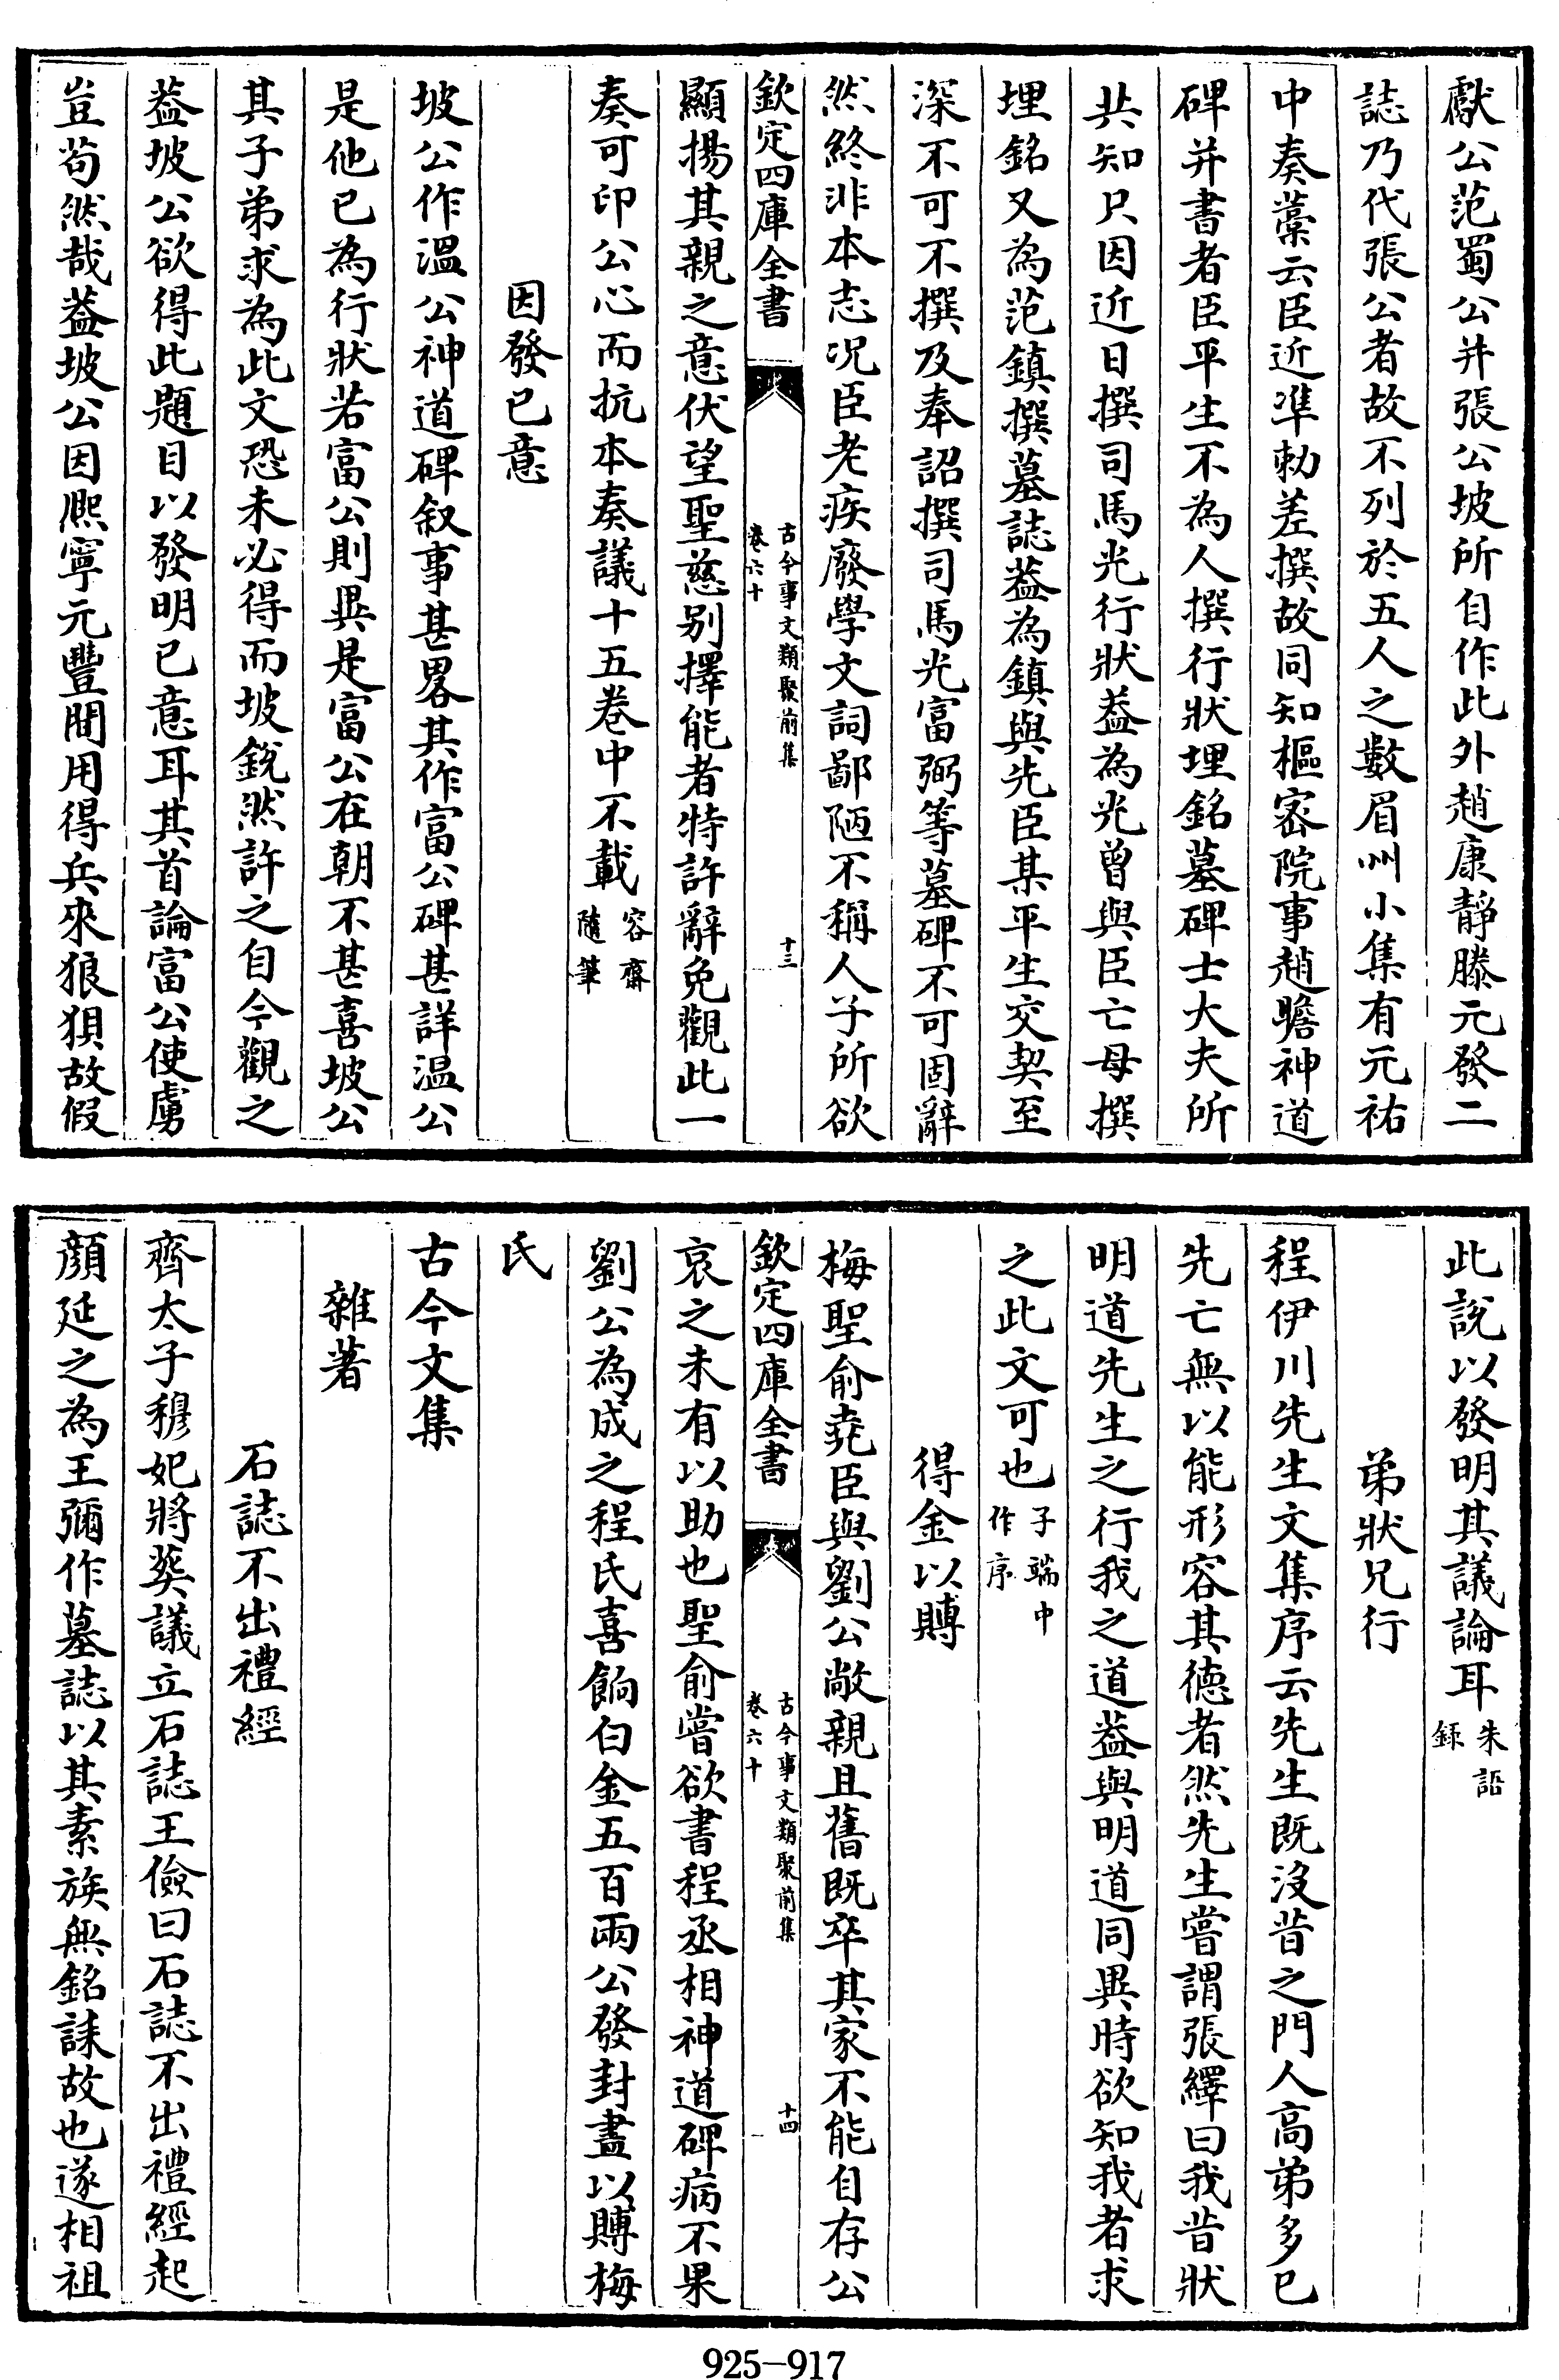 獻公范蜀公并張公坡所自作此外趙康靜滕元發二
誌乃代張公者故不列於五人之數眉州小集有元祐
中奏藁云臣近準勅差撰故同知樞密院事趙瞻神道
碑并書者臣平生不為人撰行狀埋銘墓碑士大夫所
共知只因近日撰司馬光行狀葢為光曾與臣亡母撰
埋銘又為范鎮撰墓誌葢為鎮與先臣某平生交契至
深不可不撰及奉詔撰司馬光富弼等墓碑不可固辭
然終非本志况臣老疾廢學文詞鄙陋不稱人子所欲
欽定四庫全書
古今事文類聚前集
卷六十
十三
顯揚其親之意伏望聖慈别擇能者特許辭免觀此一
奏可印公心而抗本奏議十五卷中不載容齋
隨筆
因發已意
坡公作溫公神道碑叙事甚畧其作富公碑甚詳温公
是他已為行狀若富公則異是富公在朝不甚喜坡公
其子弟求為此文恐未必得而坡銳然許之自今觀之
葢坡公欲得此題目以發明已意耳其首論富公使虜
豈茍然哉葢坡公因熈寧元豐間用得兵來狼狽故假
此說以發明其議論耳朱語
録
弟狀兄行
程伊川先生文集序云先生既沒昔之門人高弟多已
先亡無以能形容其德者然先生嘗謂張繹曰我昔狀
明道先生之行我之道葢與明道同異時欲知我者求
之此文可也子端中
作序
得金以賻
梅聖俞堯臣與劉公敞親且舊既卒其家不能自存公
欽定四庫全書
古今事文類聚前集
卷六十
十四
哀之未有以助也聖俞嘗欲書程丞相神道碑病不果
劉公為成之程氏喜餉白金五百兩公發封盡以賻梅
氏
古今文集
雜著
石誌不出禮經
齊太子穆妃將葬議立石誌王儉曰石誌不出禮經起
顔延之為王彌作墓誌以其素族無銘誄故也遂相祖
925-917